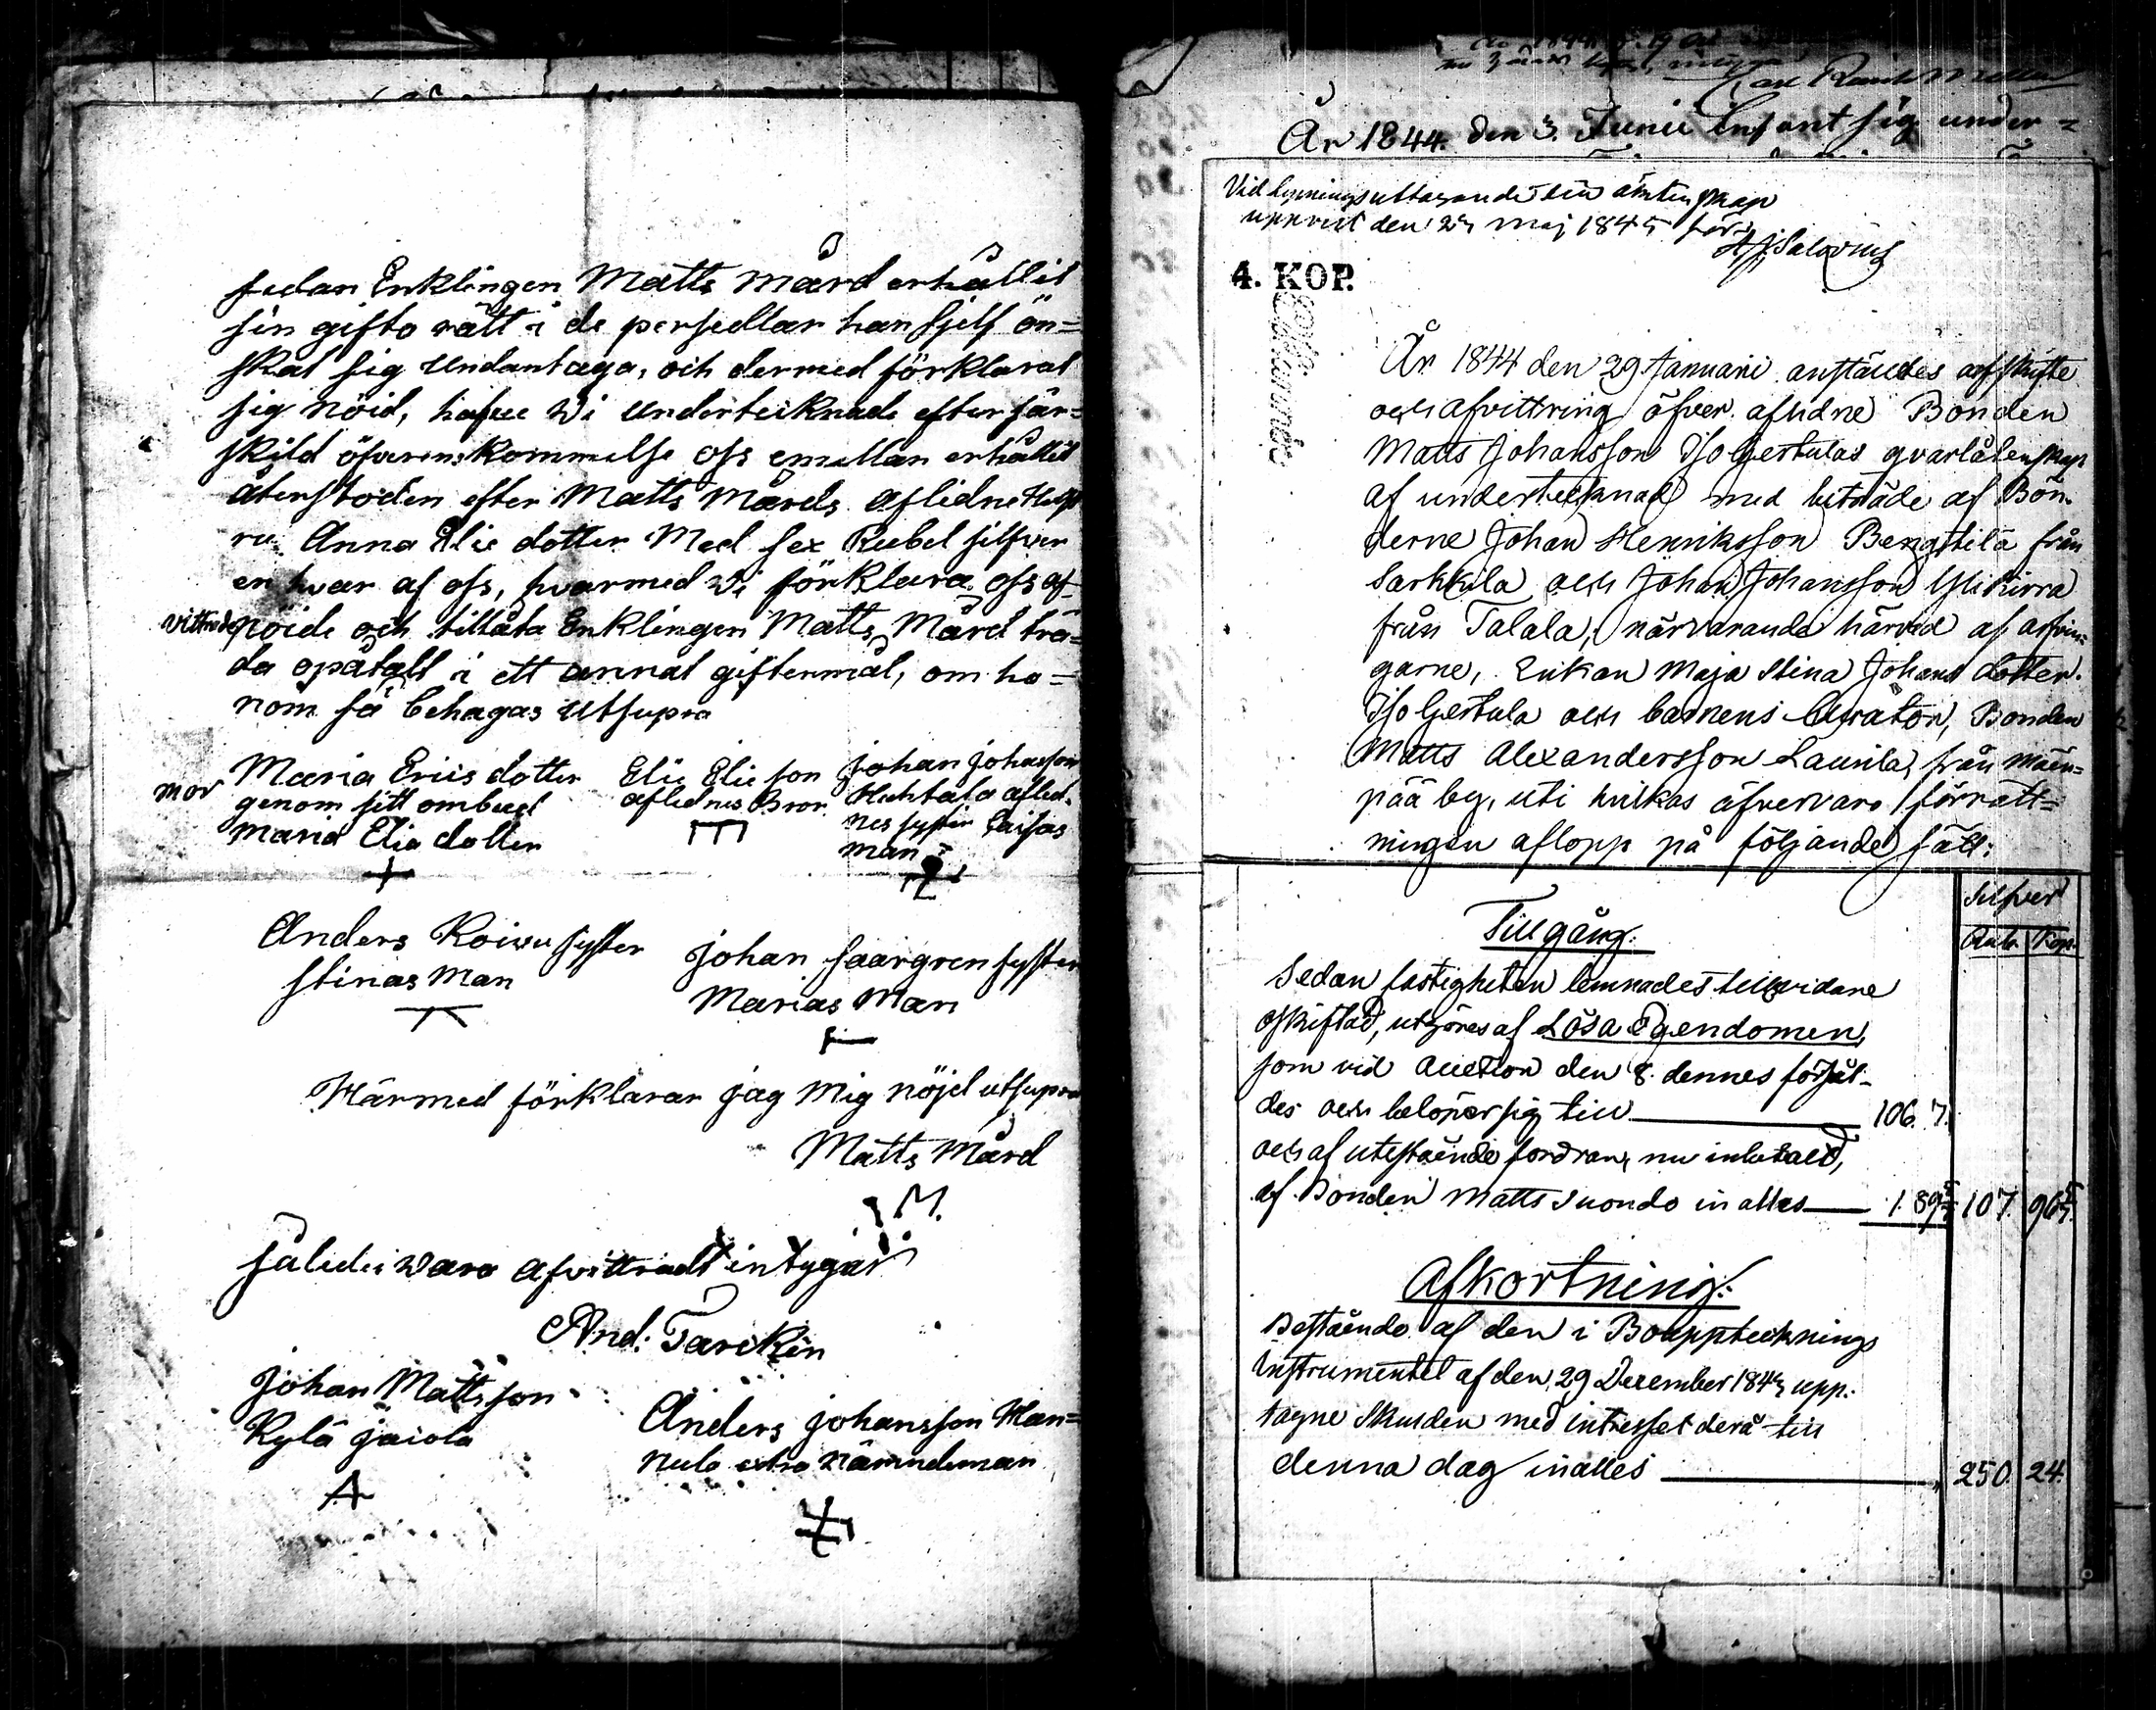 sedan Enklingen Matts Mård erhållit
sin gifto rätt i de persedlar han sjelf ön=
skat sig undantaga, och dermed förklarat
sig nöid, hafve Wi underteiknade efter sär=
skild öfverenskommelse oss emellan erhållit
återstoden efter Matts Mårds aflidne Hust
ru Anna Elie dotter Med sex Rubel silfver
en hvar af oss, hvarmed Wi förklara oss af-
vittrade nöide och tillåta Enklingen Matts Mård trä=
da opåtalt i ett annat giftermål, om ho=
nom så behagas utsupra
mor Maria Eriis dotter
genom sitt ombud
Maria Elia dotter
Elie Elie son
aflidnes Bror
Johan Johansson
Huhtala aflid.
nes syster Caisas
man
Anders Koivu syster
stinas Man
Johan Saargren syster
Marias Man
Härmed förklarar jag Mig nöjd utsupra
Matts Mård
M.
således Wara afvittradt intygar
And: Tarckin
Johan Mattsson
Kylä jaiola
Anders Johansson Han=
nula extra Nämndeman
Carl
År 1844 den 3. Junii infant sig under=
Vid
uppvist den maj 1845 för
Salovius
4. KOP.
År 1844 den 29 Januari anstäldes arfskifte
och afvittring öfver aflidne Bonden
Matts Johansson Iso Gertulas qvarlåtenskap
af undertecknad med biträde af Bön-
derne Johan Henriksson Bengtilä från
Sarkkila och Johan Johansson Ylikirra
från Talala, närvarande härvid af arfvin=
garne, Enkan Maja Stina Johans dotter
Iso Gertula och barnens Curator, Bonden
Matts Alexandersson Laurila, från Mäen=
pää by, uti hvilkas öfvervaro förrätt=
ningen aflopp på följande sätt:
Silfver
Rub. Kop.
Tillgång:
Sedan fastigheten lemnades tillsvidare
oskiftad, utgöres af Lösa Egendomen,
som vid Auction den 8. dennes försål-
des och belöper sig till 106. 7.
och af utestående fordran, nu inbetald,
af Bonden Matts Suondo in alles 1. 89 107. 96
Afkortning:
Bestående af den i Bouppteknings
Instrumentet af den 29 December 1843 upp-
tagne Skulden med intresset derå till
denna dag inalles 250. 24.